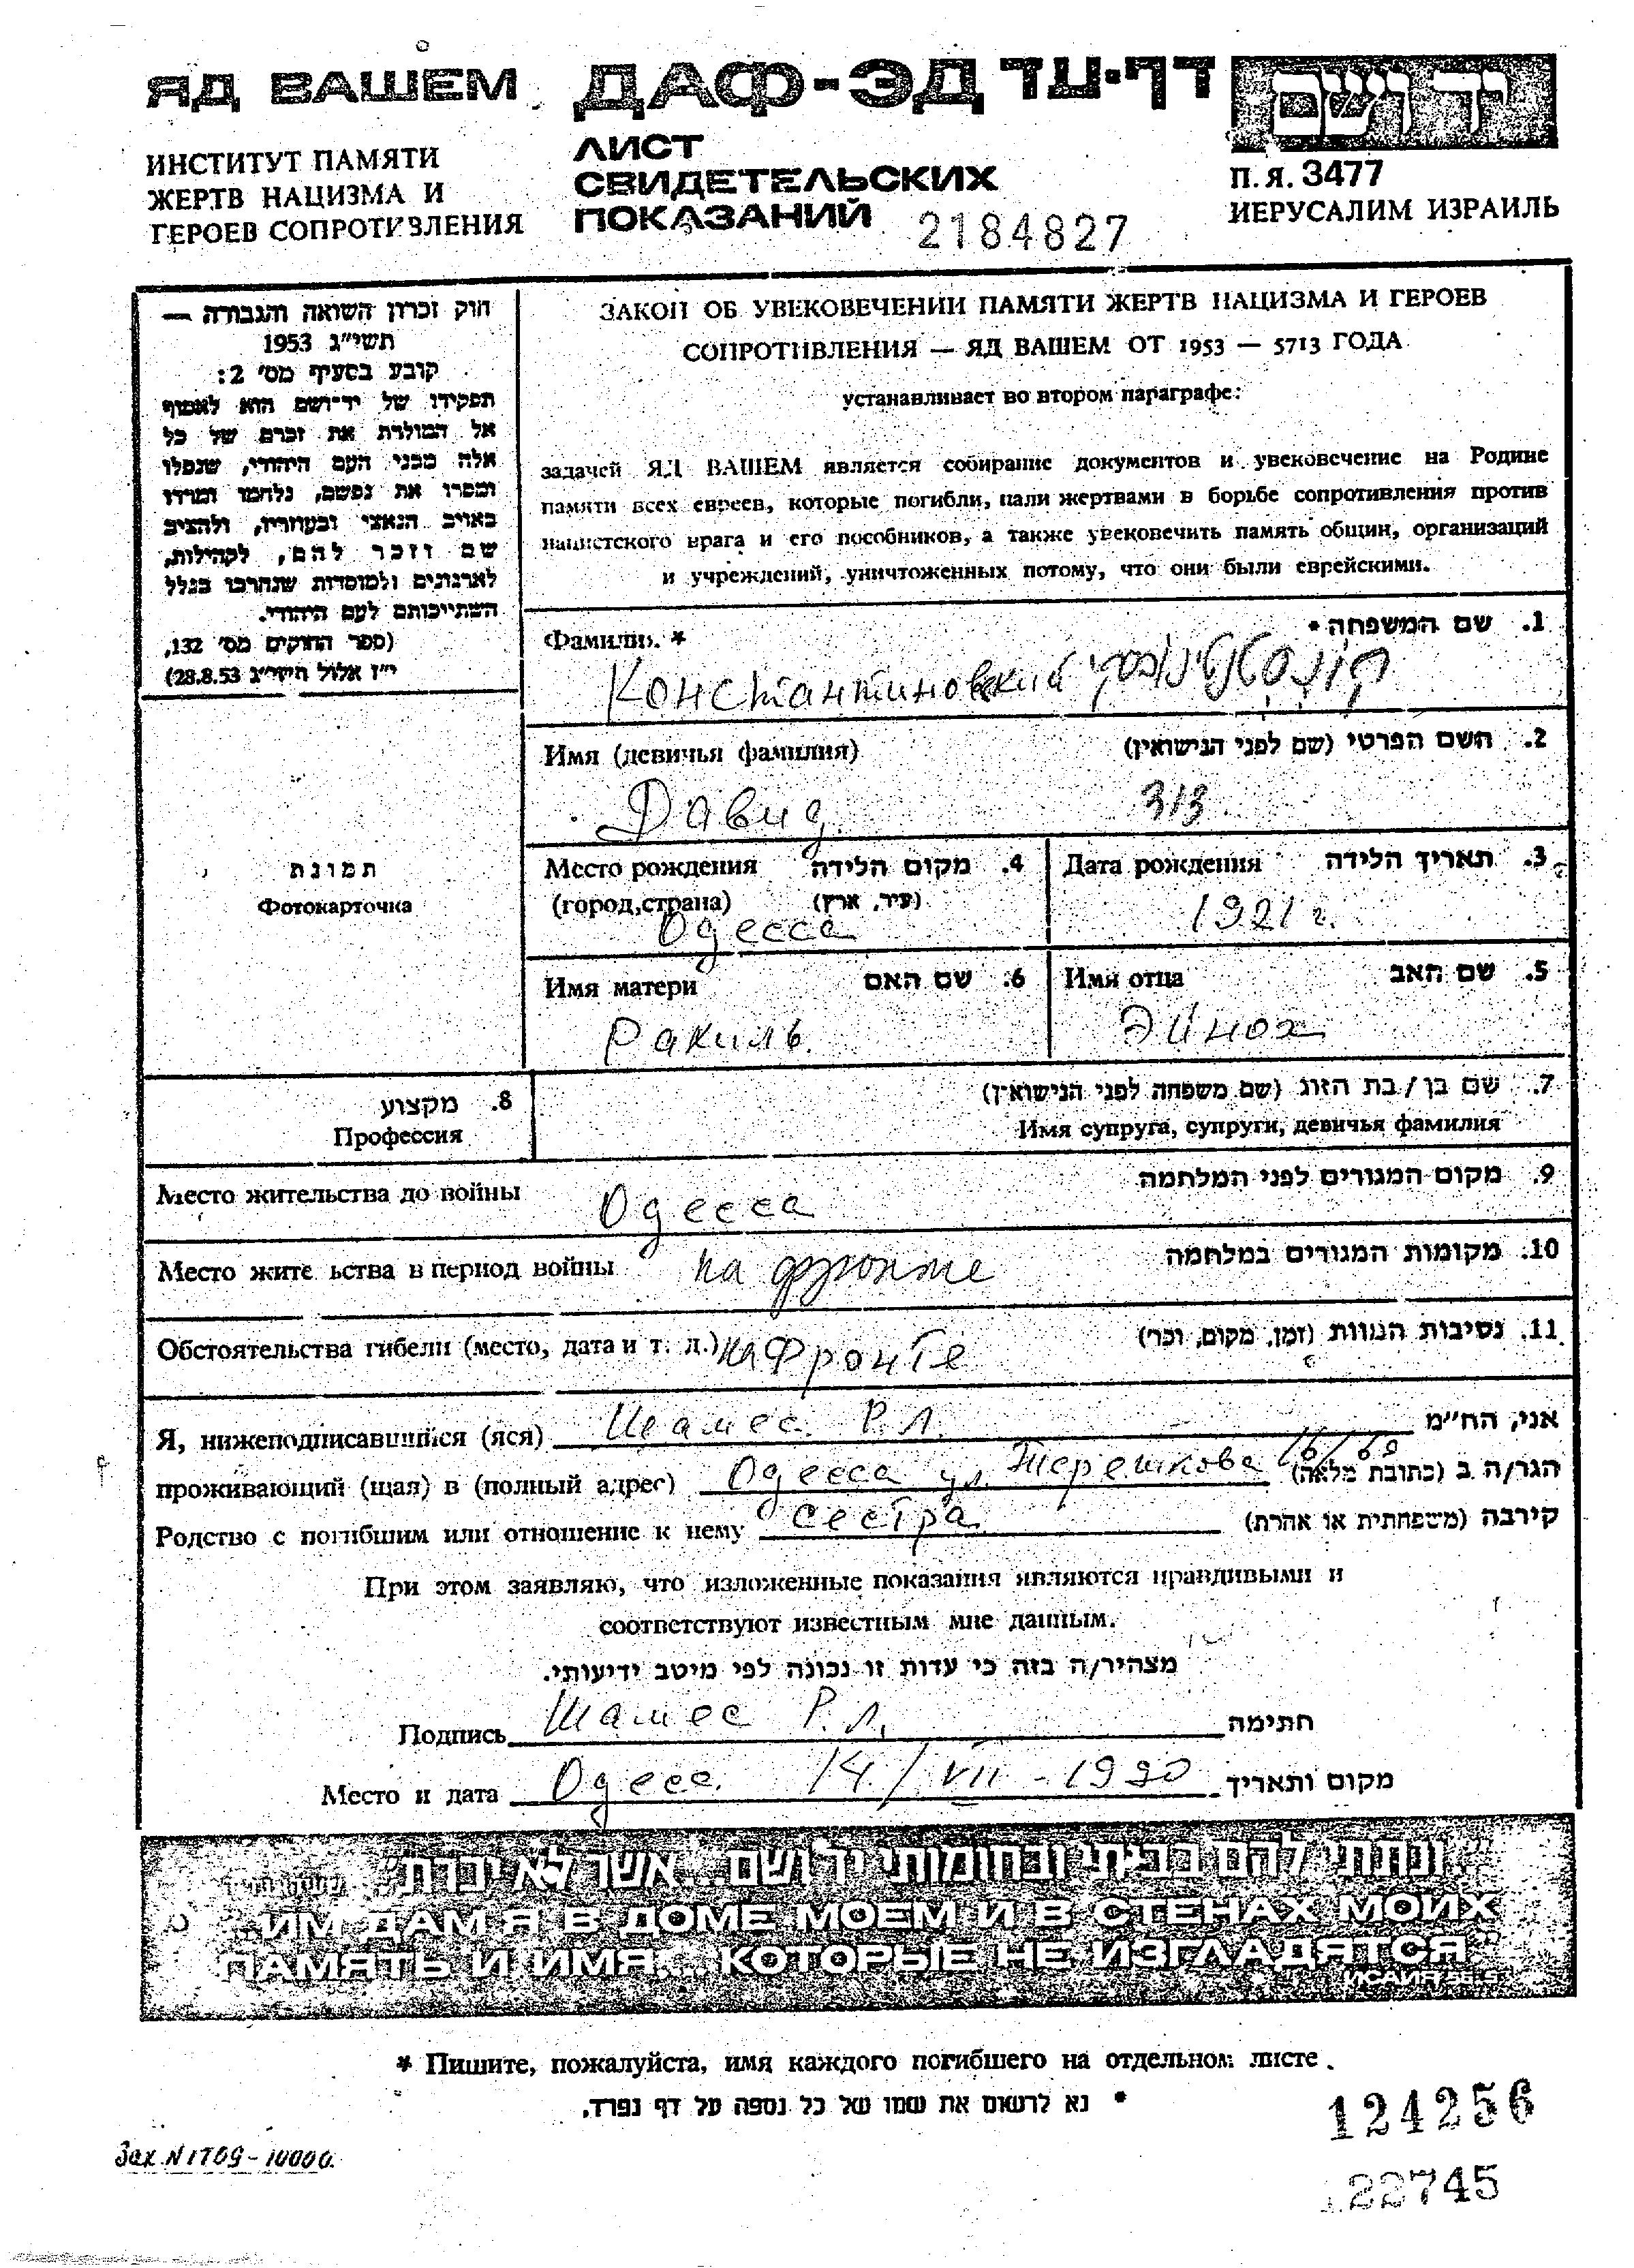 ЯД ВАШЕМ ДАФ-ЭД דף-עד יד ושם
ИНСТИТУТ ПАМЯТИ
ЖЕРТВ НАЦИЗМА И
ГЕРОЕВ СОПРОТИВЛЕНИЯ
ЛИСТ
СВИДЕТЕЛЬСКИХ
ПОКАЗАНИЙ 2184827
П.Я. 3477
ИЕРУСАЛИМ ИЗРАИЛЬ
חוק זכרון השואה והגבורה —
תשי"ג 1953
קובע בסעיף מס' 2:
תפקידו של יד-ושם הוא לאסוף
אל המולדת את זכרם של כל
אלה מבני העם היהודי, שנפלו
ומסרו את נפשם, נלחמו ומרדו
באויב הנאצי ובעוזריו, ולהציב
שם וזכר להם, לקהילות,
לארגונים ולמוסדות שנחרבו בגלל
השתייכותם לעם היהודי.
(ספר החוקים מס' 132,
י"ז אלול תשי"ג 28.8.53)
ЗАКОН ОБ УВЕКОВЕЧЕНИИ ПАМЯТИ ЖЕРТВ НАЦИЗМА И ГЕРОЕВ
СОПРОТИВЛЕНИЯ — ЯД ВАШЕМ ОТ 1953 — 5713 ГОДА
устанавливает во втором параграфе:
задачей ЯД ВАШЕМ является собирание документов и увековечение на Родине
памяти всех евреев, которые погибли, пали жертвами в борьбе сопротивления против
нацистского врага и его пособников, а также увековечить память общин, организаций
и учреждений, уничтоженных потому, что они были еврейскими.
Фамилия * 1. שם המשפחה *
Константиновский קונסטנטינובסקי
Имя (девичья фамилия) 2. השם הפרטי (שם לפני הנישואין)
Давид דוד
Место рождения 4. מקום הלידה
(город,страна) (עיר, ארץ)
Одесса
Дата рождения 3. תאריך הלידה
1921 г.
Имя матери 6. שם האם
Рахиль
Имя отца 5. שם האב
Эйнох
תמונת
Фотокарточка
8. מקצוע
Профессия
7. שם בן / בת הזוג (שם משפחה לפני הנישואין)
Имя супруга, супруги, девичья фамилия
Место жительства до войны Одесса 9. מקום המגורים לפני המלחמה
Место жите ьства в период войны на фронте 10. מקומות המגורים במלחמה
Обстоятельства гибели (место, дата и т. д.) на Фронте 11. נסיבות המוות (זמן, מקום, וכו')
Я, нижеподписавшийся (яся) Шамес Р.Л. אני, הח"מ
проживающий (щая) в (полный адрес) Одесса ул. Терешкова 16/60 הגר/ה ב (כתובת מלאה)
Родство с погибшим или отношение к нему сестра קירבה (משפחתית או אחרת)
При этом заявляю, что изложенные показания являются правдивыми и
соответствуют известным мне данным.
מצהיר/ה בזה כי עדות זו נכונה לפי מיטב ידיעותי.
Подпись Шамес Р.Л. חתימה
Место и дата Одесс. 14/VII-1990 מקום ותאריך
"ונתתי להם בביתי ובחומותי יד ושם... אשר לא יכרת"
"ИМ ДАМ Я В ДОМЕ МОЕМ И В СТЕНАХ МОИХ
ПАМЯТЬ И ИМЯ... КОТОРЫЕ НЕ ИЗГЛАДЯТСЯ"
ИСАИЯ 56.5
* Пишите, пожалуйста, имя каждого погибшего на отдельном листе.
* נא לרשום את שמו של כל נספה על דף נפרד.
124256
Зак. N 1709-10000.
22745